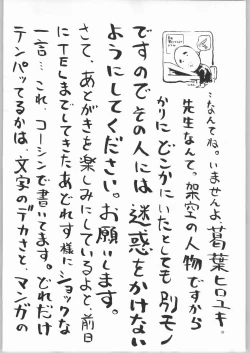 …なんてね。いませんよ、葛葉ヒロユキ
先生なんて。架空の人物ですから
かりにどこかにいたとしても別モン
ですのでその人には迷惑をかけない
ようにしてください。お願いします。
さて、あとがきを楽しみにしているよと、前日
にTELまでしてきたあどれす様にショックな
一言…これ、コーシンで書いてます。どれだけ
テンパッてるかは、文字のデカさと、マンガの